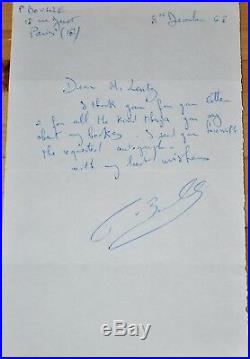 P. BOULLE
18 rue Duret
Paris (16)
8th December 68
Dear M. Lentz
I thank you for your letter
& for all the kind things you say
about my books. I send you herewith
the requested autograph.
with my best wishes
P. Boulle